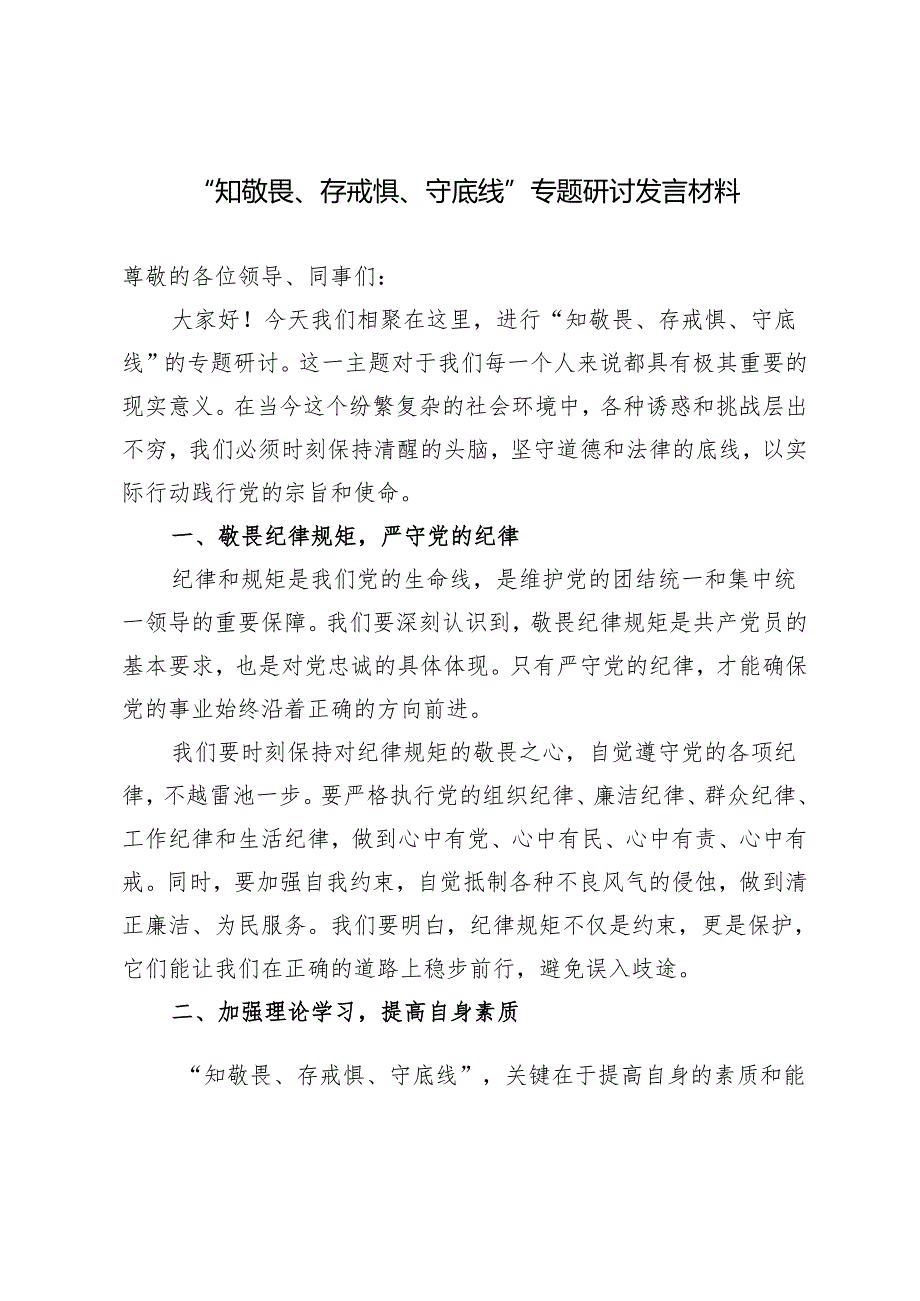 “知敬畏、存戒惧、守底线”专题研讨发言材料
尊敬的各位领导、同事们：
大家好！今天我们相聚在这里，进行“知敬畏、存戒惧、守底
线”的专题研讨。这一主题对于我们每一个人来说都具有极其重要的
现实意义。在当今这个纷繁复杂的社会环境中，各种诱惑和挑战层出
不穷，我们必须时刻保持清醒的头脑，坚守道德和法律的底线，以实
际行动践行党的宗旨和使命。
一、敬畏纪律规矩，严守党的纪律
纪律和规矩是我们党的生命线，是维护党的团结统一和集中统
一领导的重要保障。我们要深刻认识到，敬畏纪律规矩是共产党员的
基本要求，也是对党忠诚的具体体现。只有严守党的纪律，才能确保
党的事业始终沿着正确的方向前进。
我们要时刻保持对纪律规矩的敬畏之心，自觉遵守党的各项纪
律，不越雷池一步。要严格执行党的组织纪律、廉洁纪律、群众纪律、
工作纪律和生活纪律，做到心中有党、心中有民、心中有责、心中有
戒。同时，要加强自我约束，自觉抵制各种不良风气的侵蚀，做到清
正廉洁、为民服务。我们要明白，纪律规矩不仅是约束，更是保护，
它们能让我们在正确的道路上稳步前行，避免误入歧途。
二、加强理论学习，提高自身素质
“知敬畏、存戒惧、守底线”，关键在于提高自身的素质和能